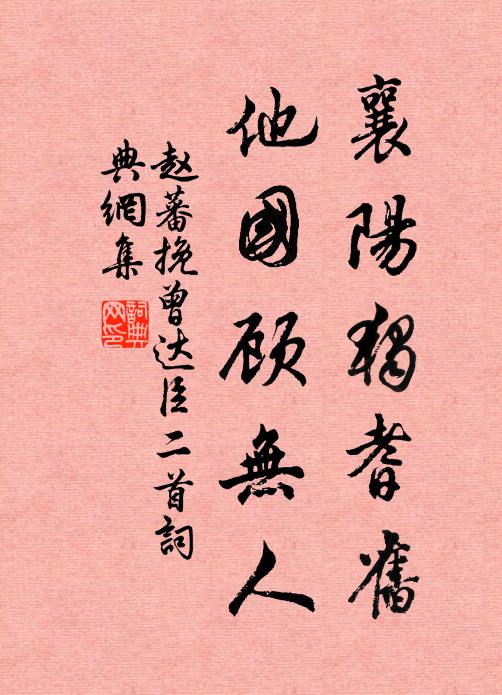 襄陽獨耆舊
他國顾無人
赵蕃挽曾达臣二首詞
典網集
詞典
网印